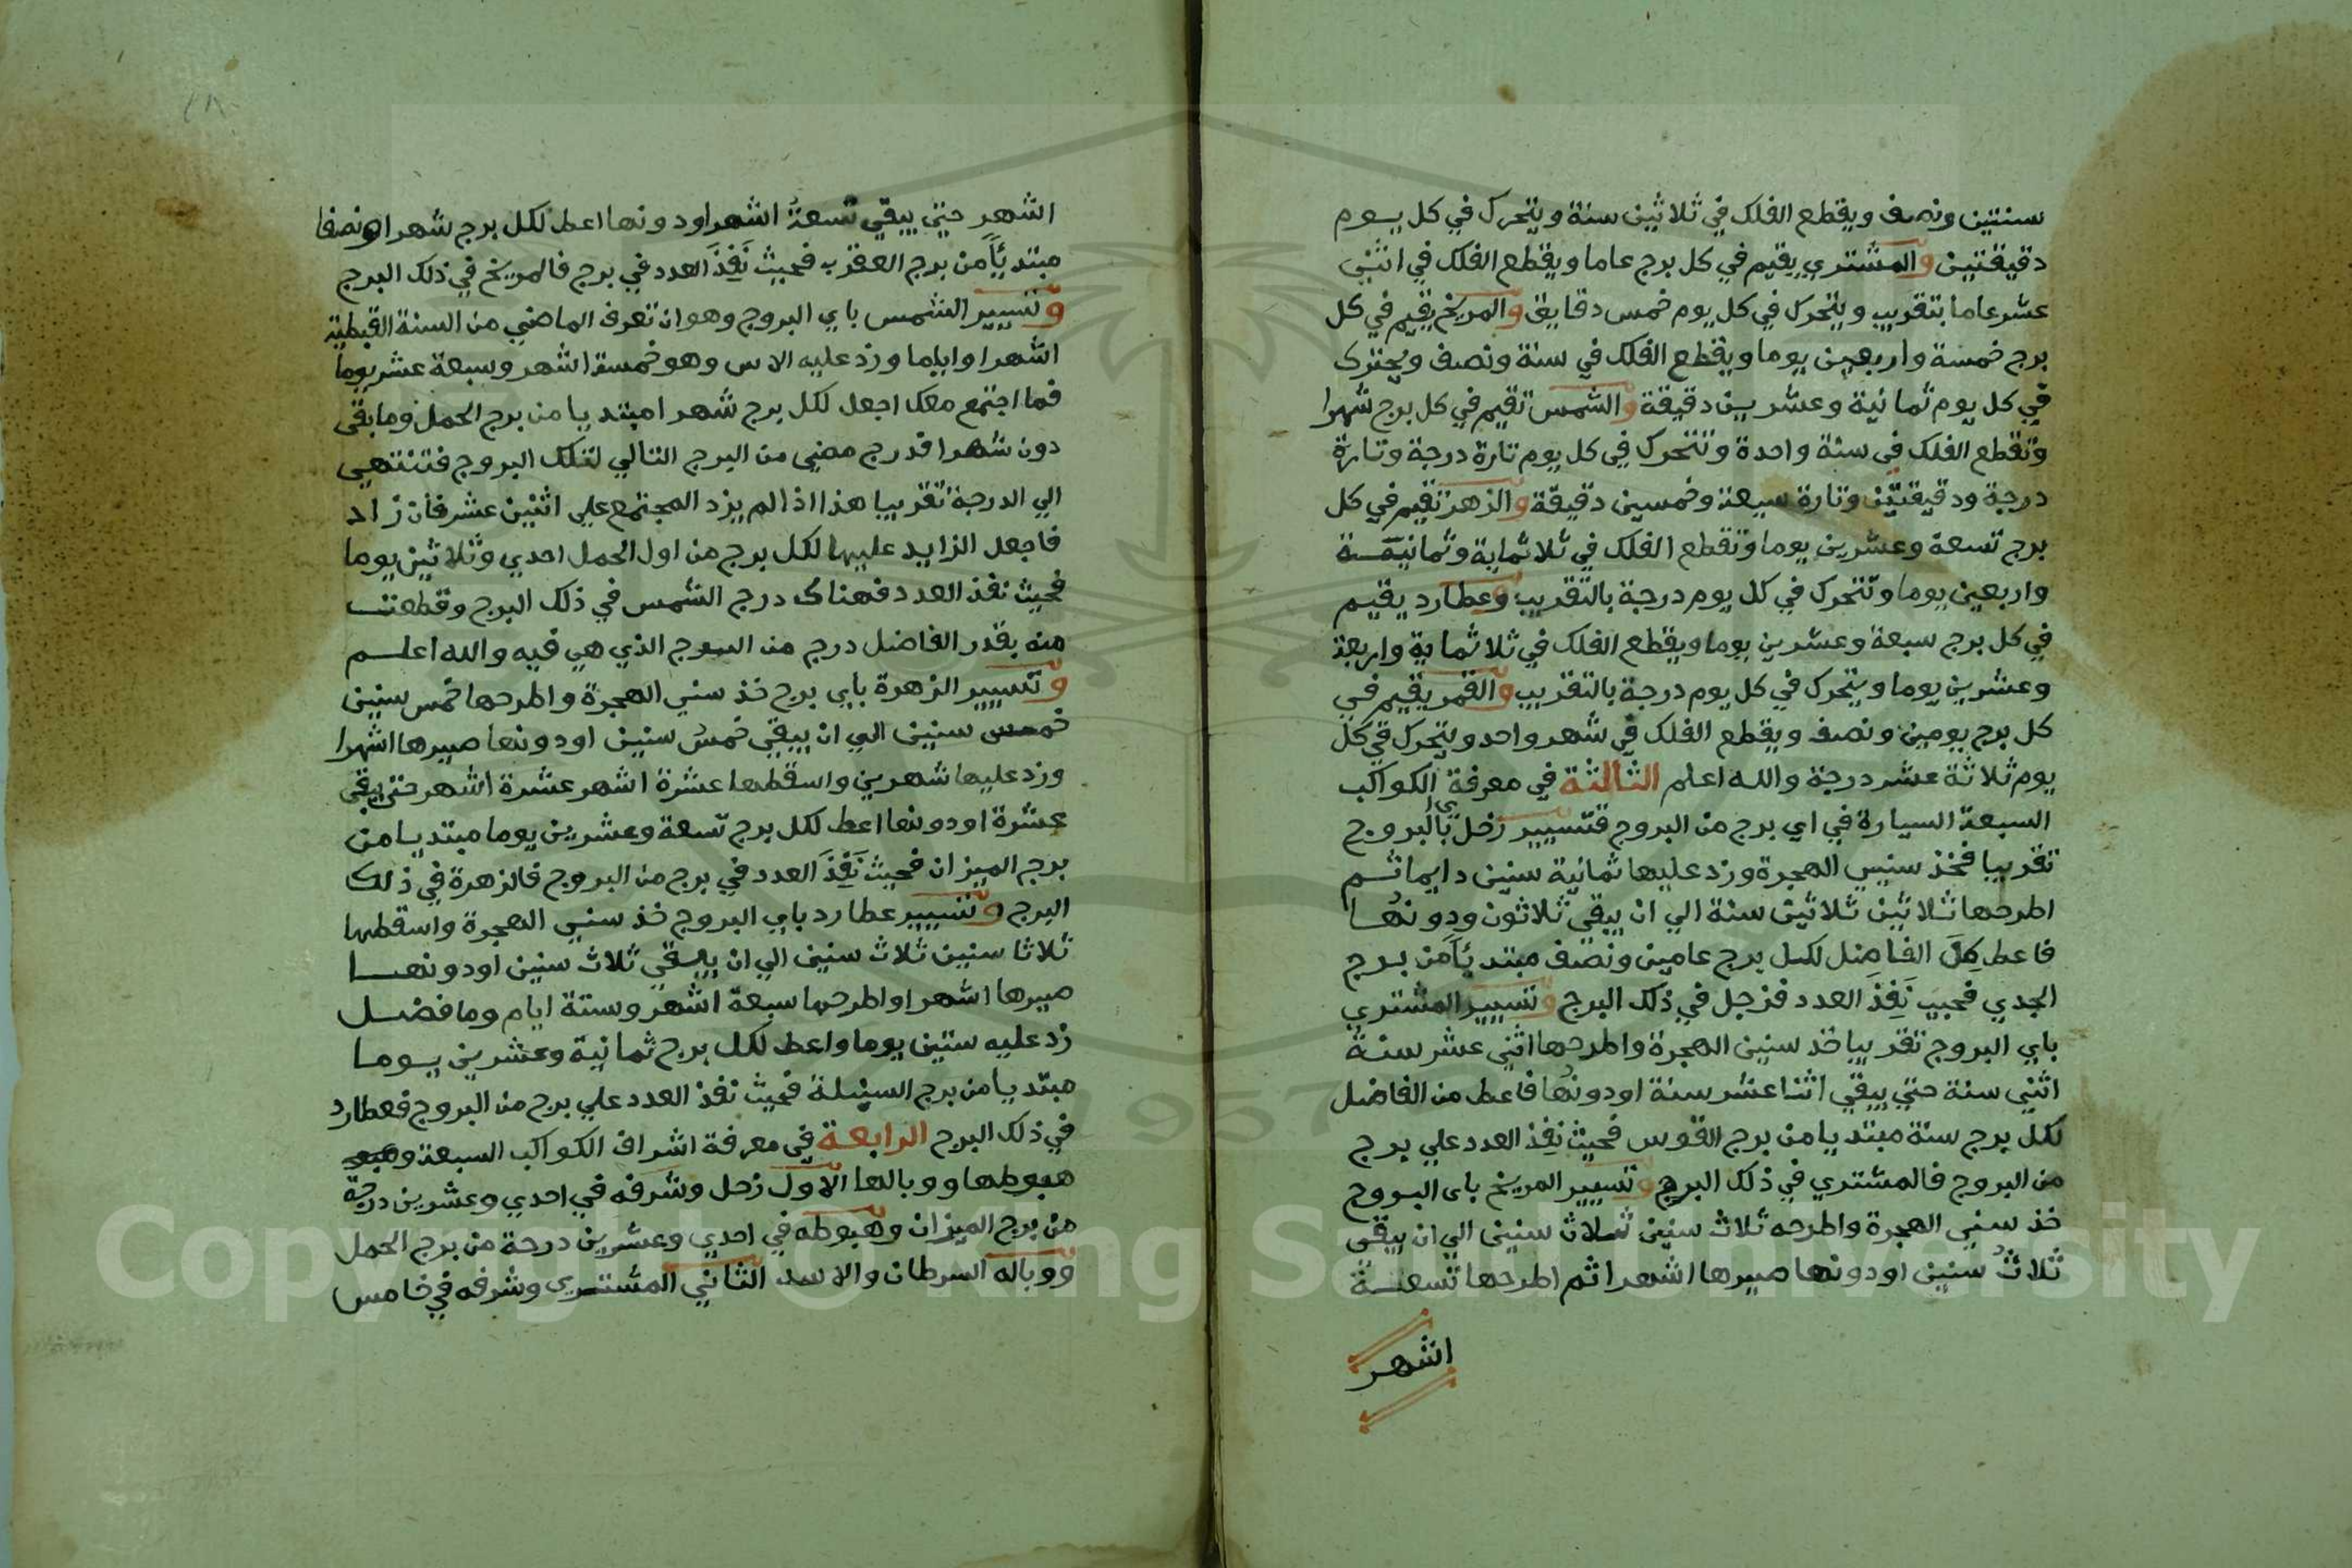 سنتين ونصف ويقطع الفلك في ثلاثين سنة ويتحرك في كل يوم
دقيقتين والمشتري يقيم في كل برج عاما ويقطع الفلك في اثني
عشر عاما بتقريب ويتحرك في كل يوم خمس دقايق والمريخ يقيم في كل
برج خمسة واربعين يوما ويقطع الفلك في سنة ونصف ويتحرك
في كل يوم ثمانية وعشرين دقيقة والشمس تقيم في كل برج شهرا
وتقطع الفلك في سنة واحدة وتتحرك في كل يوم تارة درجة وتارة
درجة ودقيقتين وتارة سبعة وخمسين دقيقة والزهرة تقيم في كل
برج تسعة وعشرين يوما وتقطع الفلك في ثلاثماية وثمانية
واربعين يوما وتتحرك في كل يوم درجة بالتقريب وعطارد يقيم
في كل برج سبعة وعشرين يوما ويقطع الفلك في ثلاثماية واربعة
وعشرين يوما ويتحرك في كل يوم درجة بالتقريب والقمر يقيم في
كل برج يومين ونصف ويقطع الفلك في شهر واحد ويتحرك في كل
يوم ثلاثة عشر درجة والله اعلم الثالثة في معرفة الكواكب
السبعة السيارة في اي برج من البروج فتسيير زحل باي البروج
تقريبا فخذ سنين الهجرة وزد عليها ثمانية سنين دايما ثم
اطرحها ثلاثين ثلاثين سنة الي ان يبقي ثلاثون ودونها
فاعط كل الفاضل لكل برج عامين ونصف مبتديا من برج
الجدي فحيث نفذ العدد فزحل في ذلك البرج وتسيير المشتري
باي البروج تقريبا خذ سنين الهجرة واطرحها اثني عشر سنة
اثني سنة حتي يبقي اثنا عشر سنة اودونها فاعط من الفاضل
لكل برج سنة مبتديا من برج القوس فحيث نفذ العدد علي برج
من البروج فالمشتري في ذلك البرج وتسيير المريخ باي البروج
خذ سني الهجرة واطرحه ثلاث سنين ثلاث سنين الي ان يبقي
ثلاث سنين اودونها صيرها اشهرا ثم اطرحها تسعة
اشهر
اشهر حتي يبقي تسعة اشهر اودونها اعط لكل برج شهرا ونصفا
مبتديا من برج العقرب فحيث نفذ العدد في برج فالمريخ في ذلك البرج
وتسيير الشمس باي البروج وهو ان تعرف الماضي من السنة القبطية
اشهرا واياما وزد عليه الاس وهو خمسة اشهر وسبعة عشر يوما
فما اجتمع معك اجعل لكل برج شهرا مبتديا من برج الحمل وما بقي
دون شهرا فدرج مضي من البرج التالي لتلك البروج فتنتهي
الي الدرجة تقريبا هذا اذا لم يزد المجتمع علي اثنين عشر فان زاد
فاجعل الزايد عليها لكل برج من اول الحمل احدي وثلاثين يوما
فحيث نفذ العدد فهناك درج الشمس في ذلك البرج وقطعت
منه بقدر الفاضل درج من البرج الذي هي فيه والله اعلم
وتسيير الزهرة باي برج خذ سني الهجرة واطرحها خمس سنين
خمس سنين الي ان يبقي خمس سنين اودونها صيرها اشهرا
وزد عليها شهرين واسقطها عشرة اشهر عشرة اشهر حتي يبقي
عشرة اودونها اعط لكل برج تسعة وعشرين يوما مبتديا من
برج الميزان فحيث نفذ العدد في برج من البروج فالزهرة في ذلك
البرج وتسيير عطارد باي البروج خذ سني الهجرة واسقطها
ثلاثا سنين ثلاث سنين الي ان يبقي ثلاث سنين اودونها
صيرها اشهرا واطرحها سبعة اشهر وستة ايام وما فضل
زد عليه ستين يوما واعط لكل برج ثمانية وعشرين يوما
مبتديا من برج السنبلة فحيث نفذ العدد علي برج من البروج فعطارد
في ذلك البرج الرابعة في معرفة اشراف الكواكب السبعة
هبوطها ووبالها الاول زحل وشرفه في احدي وعشرين درجة
من برج الميزان وهبوطه في احدي وعشرين درجة من برج الحمل
ووباله السرطان والاسد الثاني المشتري وشرفه في خامس
Copyright © King Saud University
1957